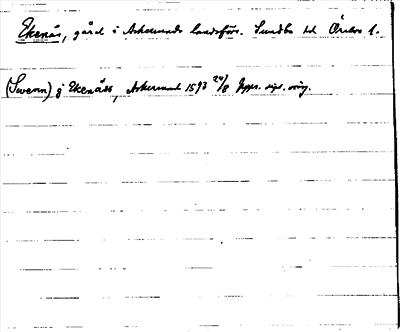 Ekenäs, gård i Askersunds landsförs. Sundbo hd Örebro l.
(Swenn) j Ekenääs, Askersund 1593 24/8 sigs. orig.